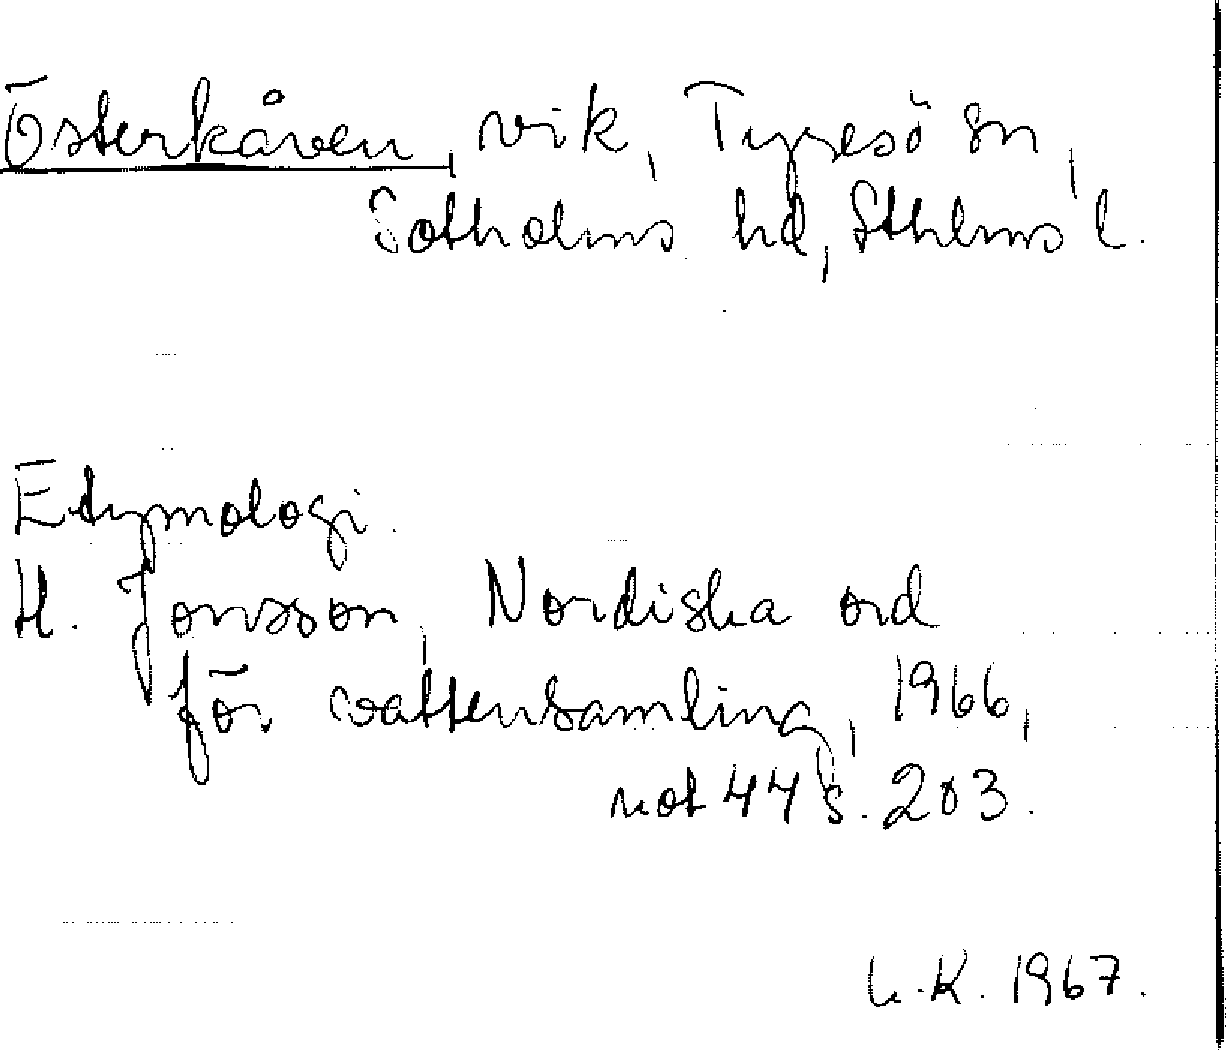 Österkåven, vik, Tyresö sn,
Sotholms hd, Sthlms l.
Etymologi.
H. Jonsson, Nordiska ord
för vattensamling, 1966,
not 44 s. 203.
L.K. 1967.